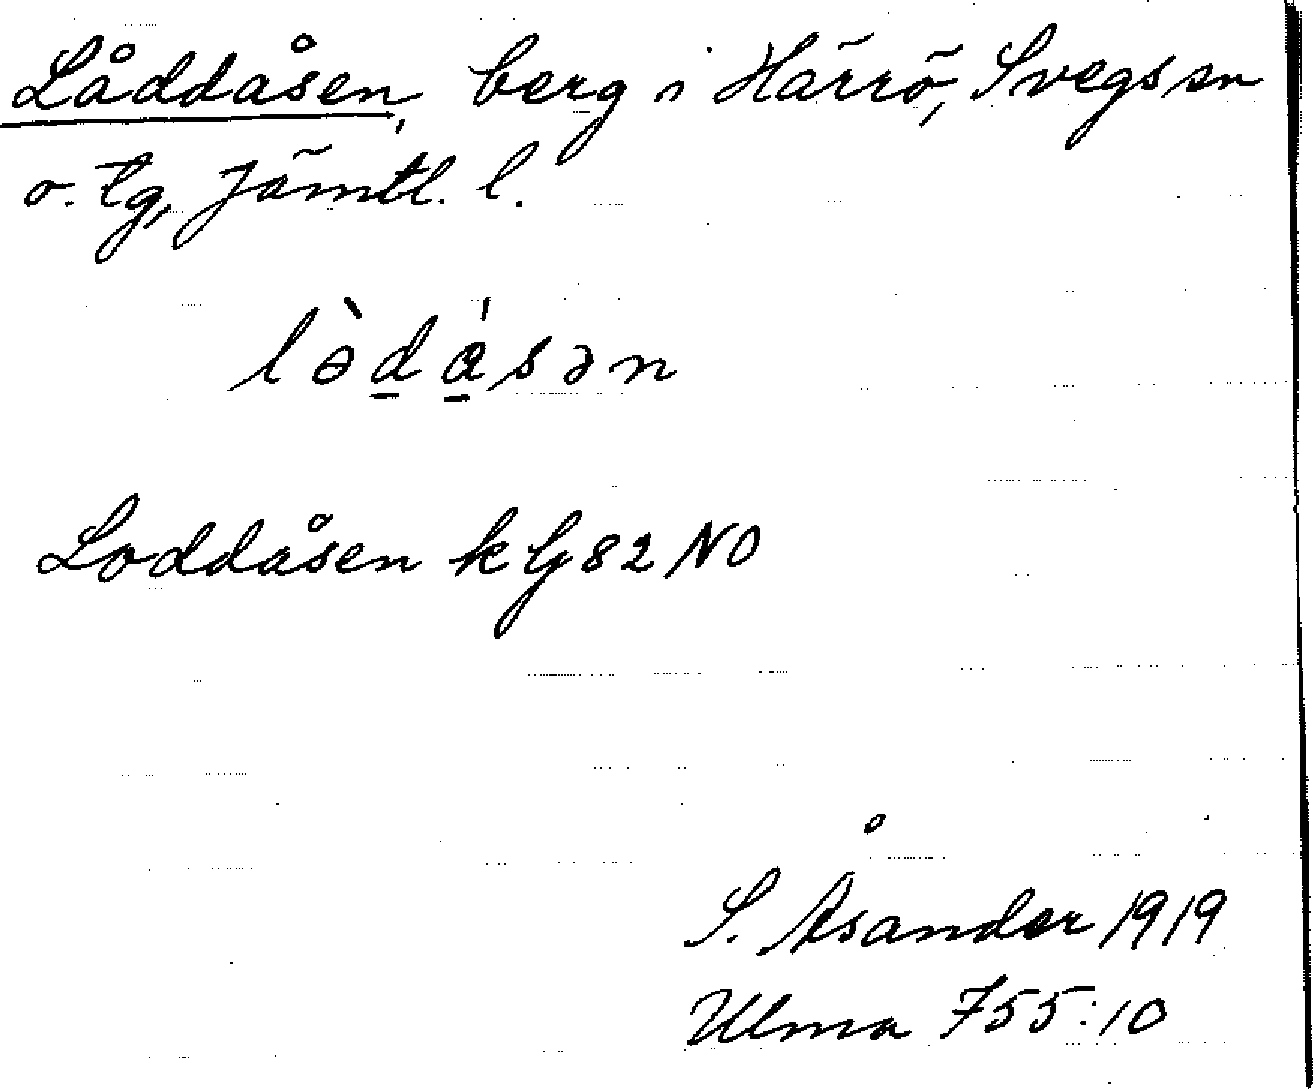 Låddåsen, berg i Härrö, Svegs sn
o. tg, Jämtl. l.
lə̀da̍sən
Loddåsen k G 82 NO
S. Åsander 1919
Ulma 755:10